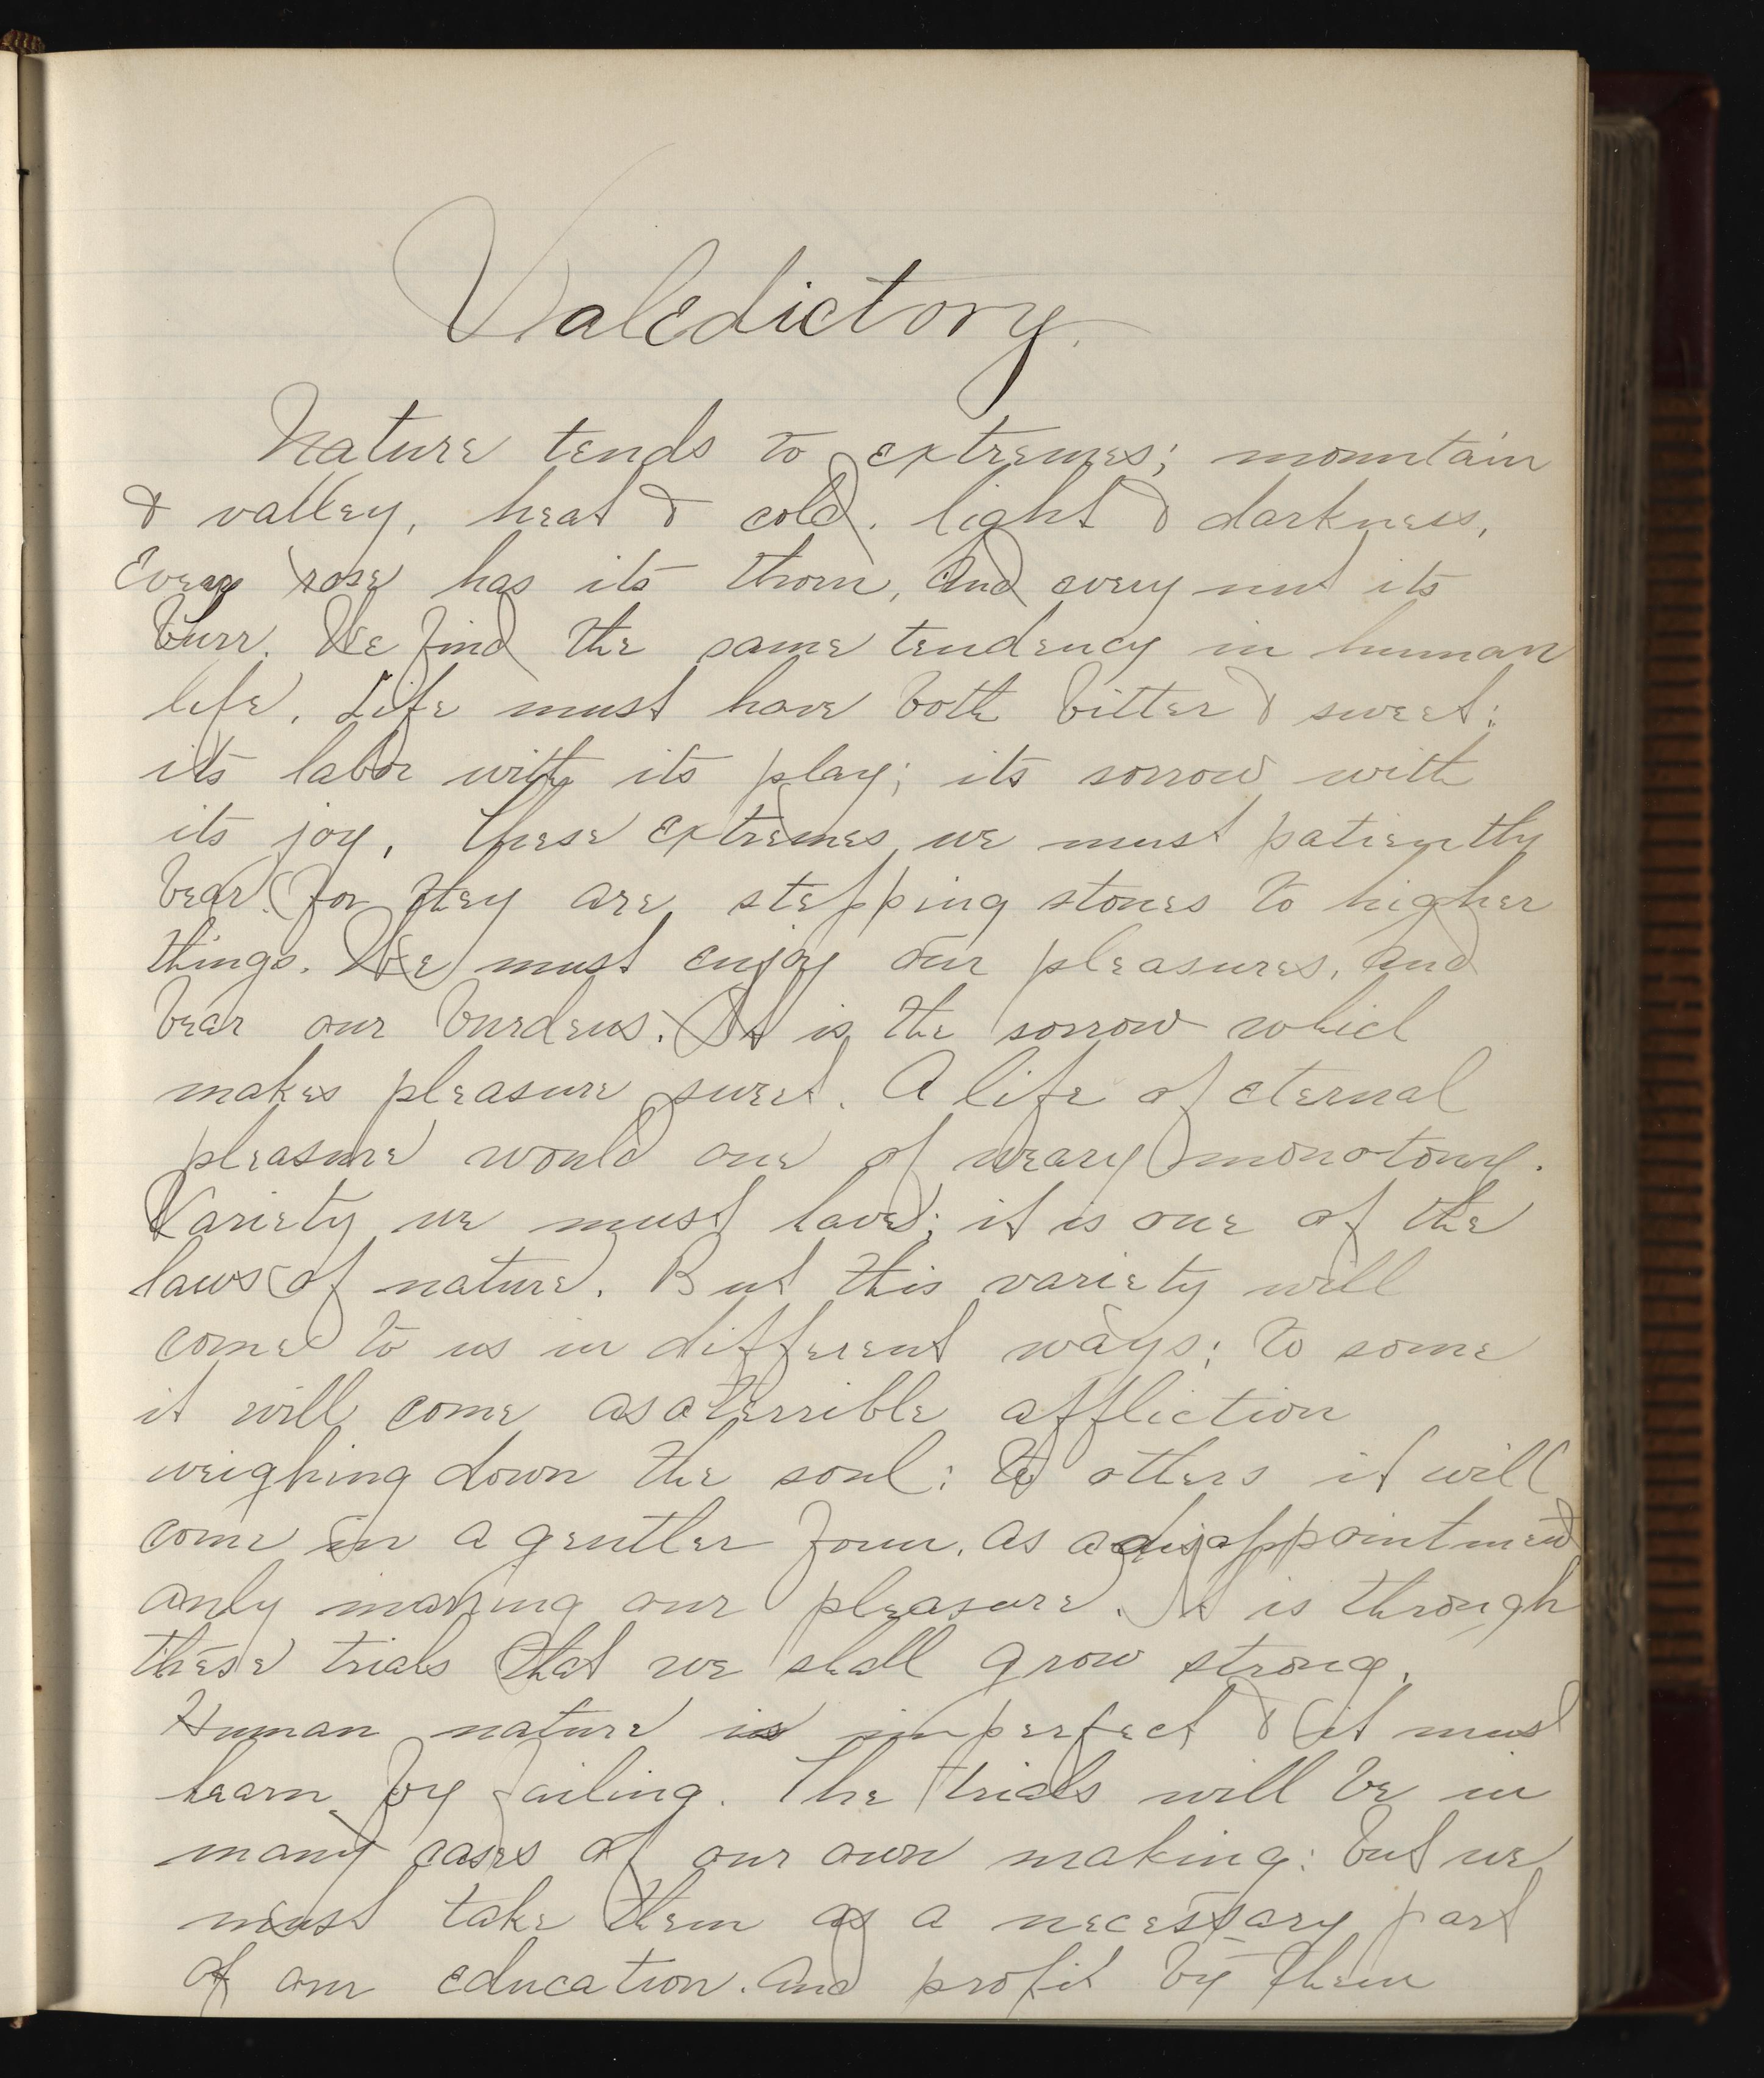 Valedictory.
Nature tends to extremes; mountain
& valley, heat & cold. light & darkness,
Every rose has its thorn, and every nut its
burr. We find the same tendency in human
life. Life must have both bitter & sweet;
its labor with its play; its sorrow with
its joy. These extremes we must patiently
bear. For they are stepping stones to higher
things. We must enjoy our pleasures, and
bear our burdens. It is the sorrow which
makes pleasure sweet. A life of eternal
pleasure would one of weary monotony.
Variety we must have; it is one of the
laws of nature. But this variety will
come to us in different ways; to some
it will come as a terrible affliction
weighing down the soul: to others it will
come in a gentler form. as a disappointment
only marring our pleasure. It is through
these trials that we shall grow strong.
Human nature is imperfect & it must
learn by failing. The trials will be in
many cases of our own making: but we
must take them as a necessary part
of our education. and profit by them